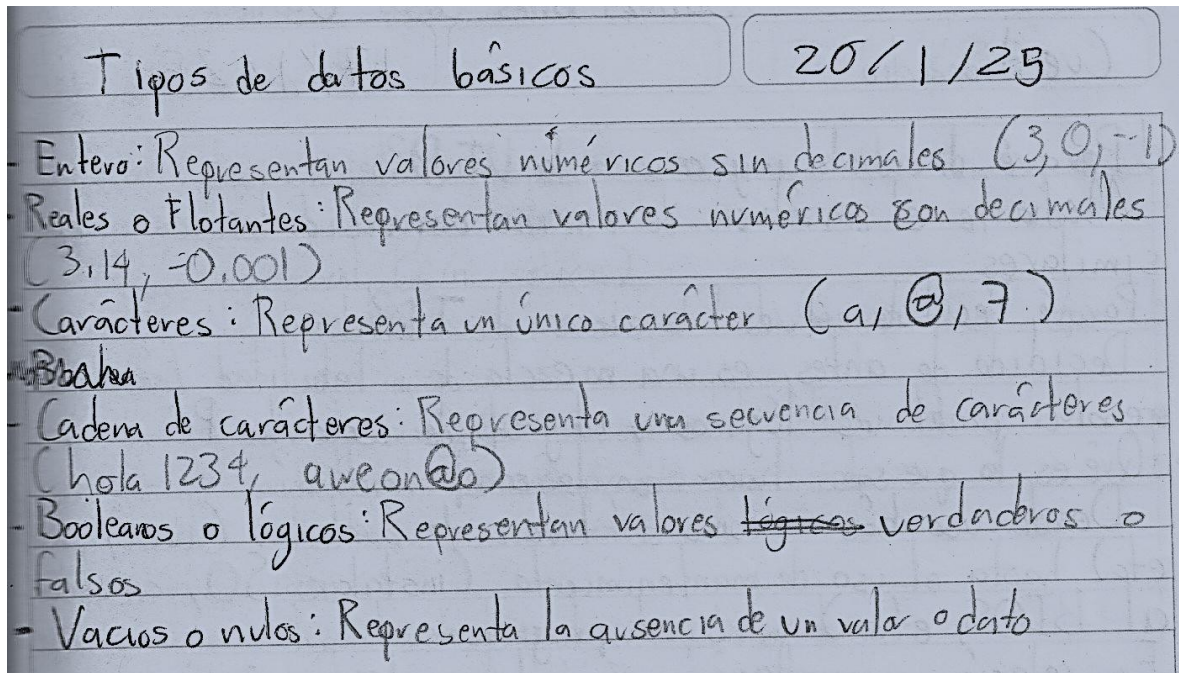 Tipos de datos básicos 20/1/25
- Entero: Representan valores númericos sin decimales (3,0,-1)
- Reales o Flotantes: Representan valores numéricos con decimales
(3,14, -0.001)
- Carácteres: Representa un único carácter (a, @, 7)
- Cadena de carácteres: Representa una secuencia de carácteres
(hola 1234, aweon@o)
- Booleanos o lógicos: Representan valores lógicos verdaderos o
falsos
- Vacios o nulos: Representa la ausencia de un valor o dato